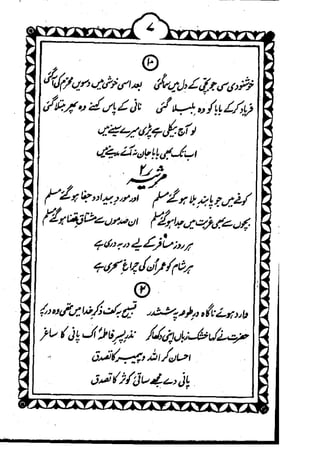 ۷
۱۰
خوشنودی سی جو بچی کے دل میں سما گئی بعد اسی خوشی میں دسویں محرم کی آ گئی
فریاد کر کے بابا کو وہ بلبلا گئی نانی کے پاس کہنے وہ پھر مبتلا گئی
لو آج بیکلی ہے بڑی میرے سینے میں
اب تک بھی بابا جان نہ آئے مدینے میں
مرثیہ ۲
کوفے میں جو پابند بلا ہو گئے مسلم اور مورد بیداد و جفا ہو گئے مسلم
بچوں سے بھی غربت میں جدا ہو گئے مسلم ان صدموں سے مشتاق قضا ہو گئے مسلم
ہر روز مسافر کے لیے دربدری ہے
ہر شام کو عمر ان کی چراغ سحری ہے
۲
وارد ہوئے ناگاہ در طوعہ پہ ششدر تسبیح بکف ذکر خدا میں تھی وہ در پہ
حضرت نے کہا خشک زباں اپنی دکھا کر نذر پسر فاطمہ اک پانی کا ساغر
احسان کر اللہ و پیمبر کا تصدق
پانی دے مجھے ساقی کوثر کا تصدق